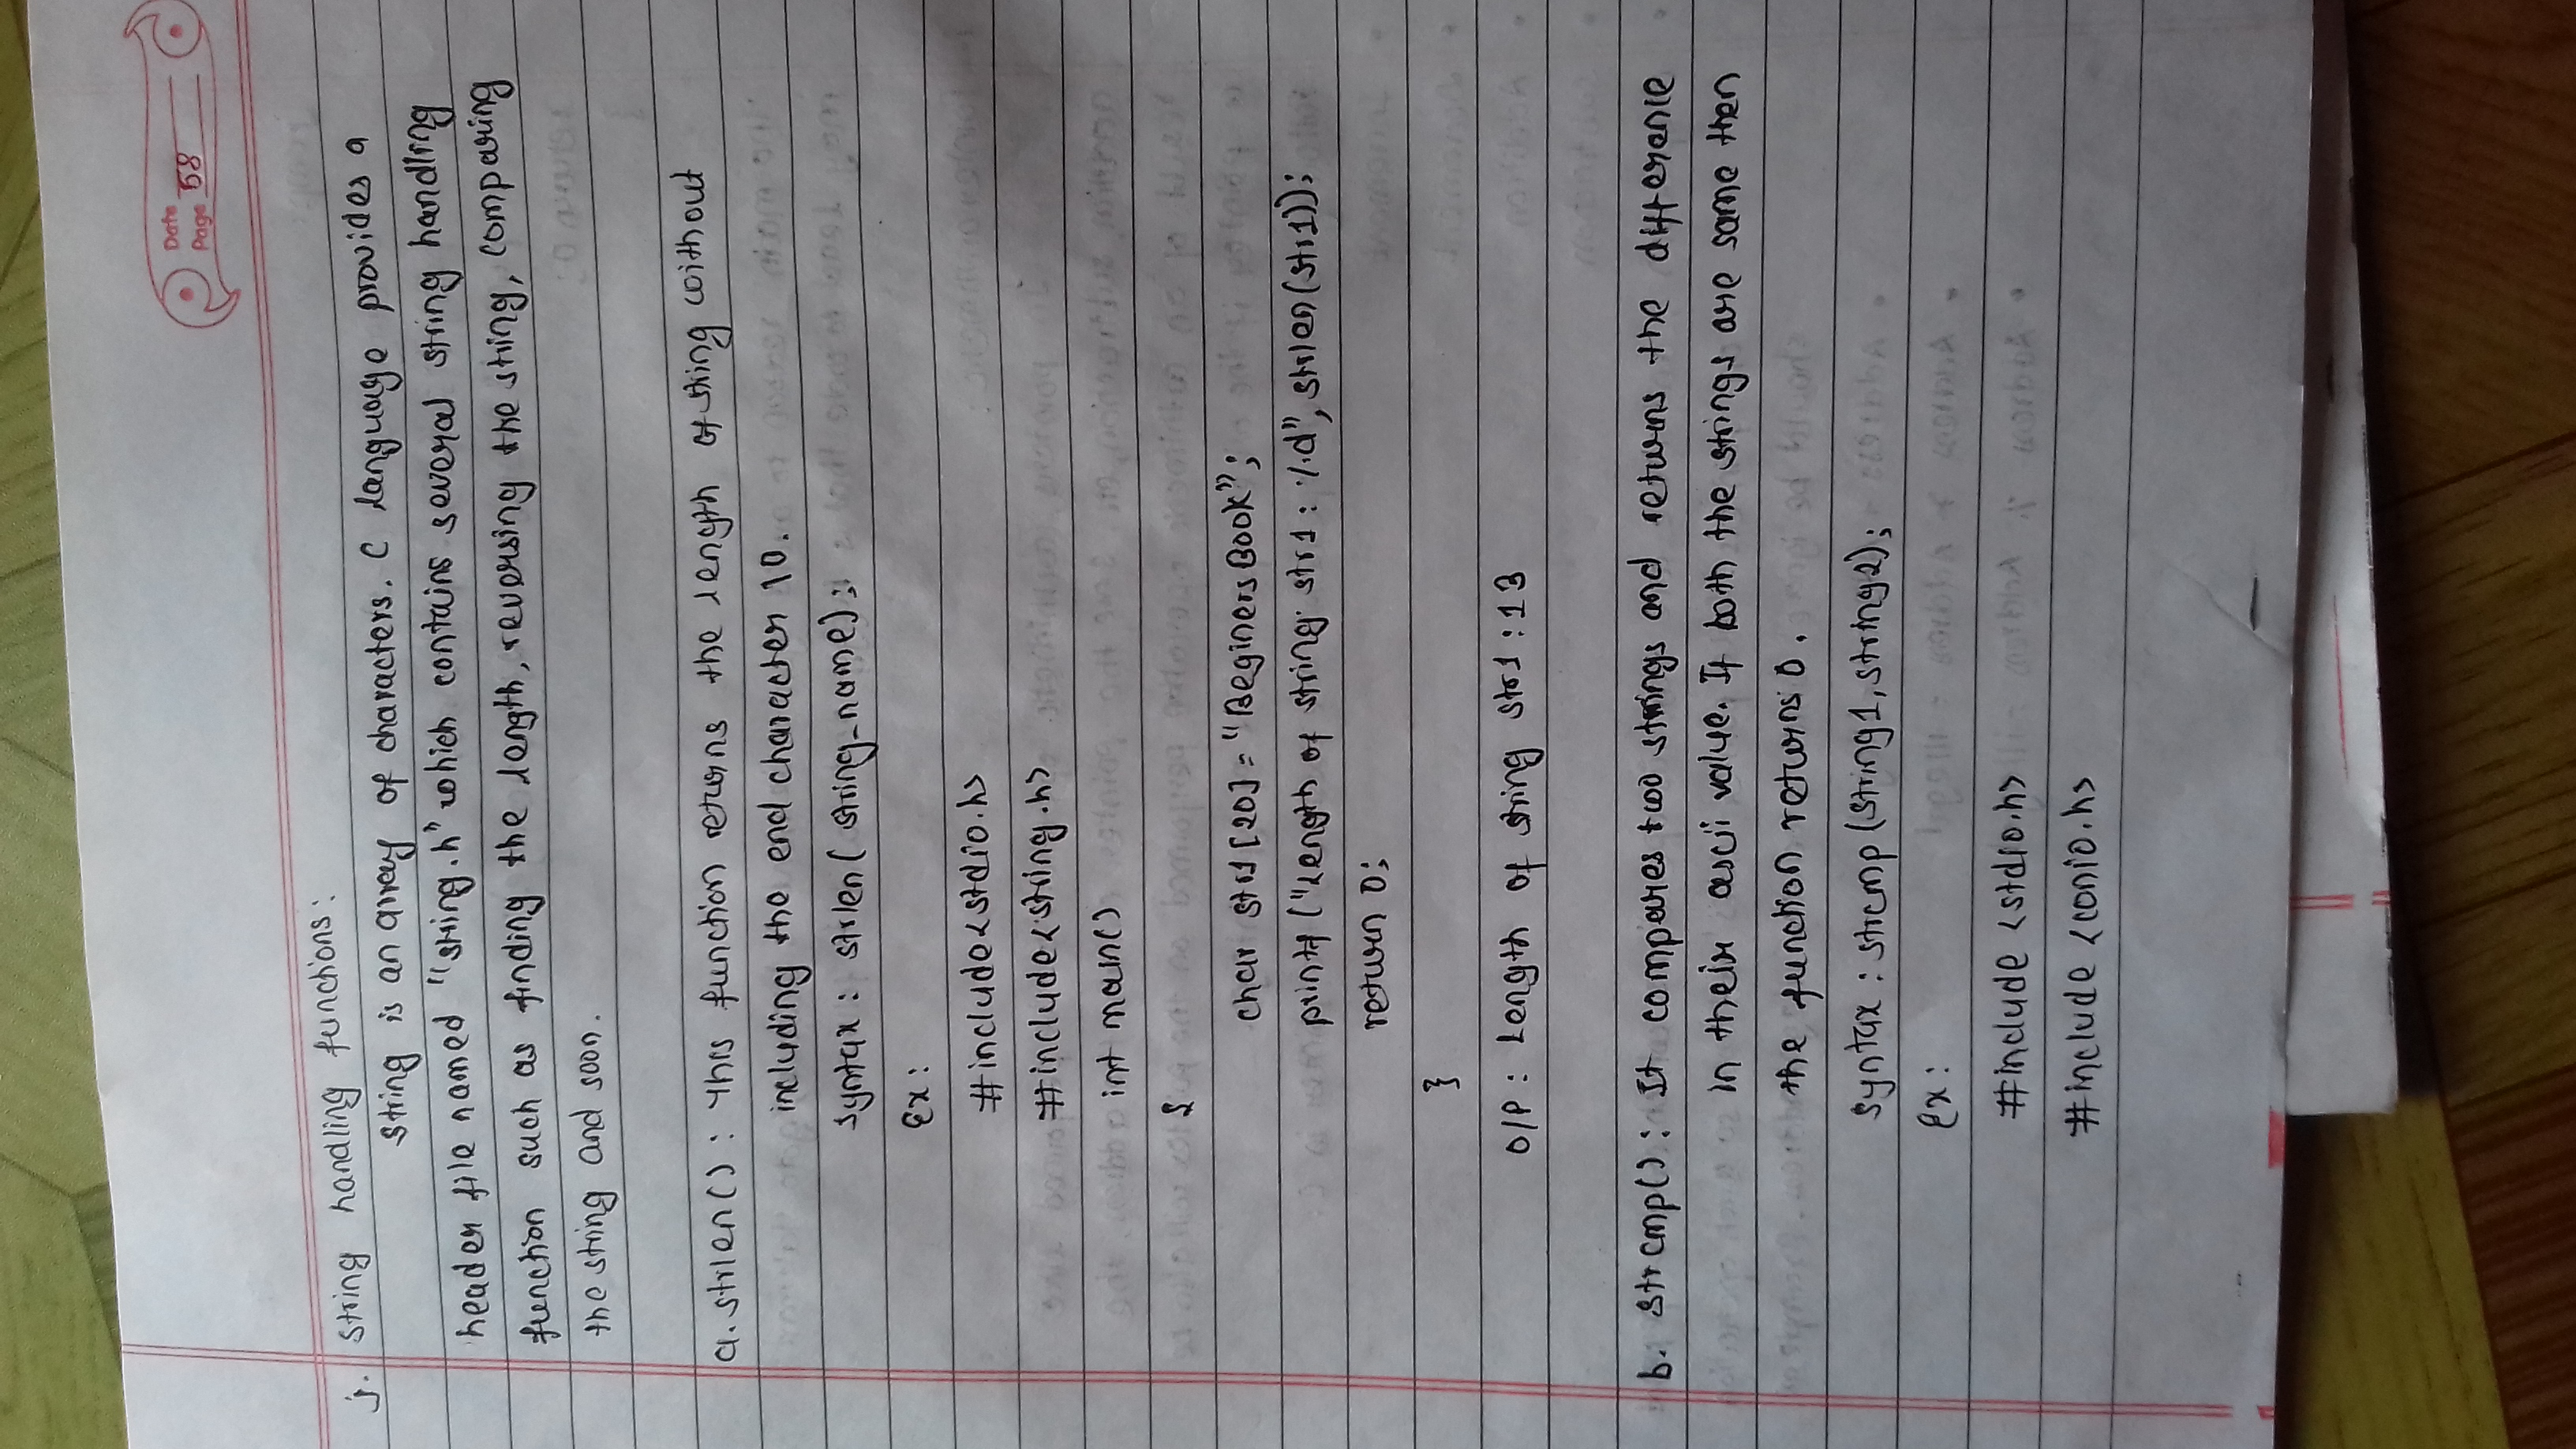 Date
Page 58
j. String handling functions:
String is an array of characters. C language provides a
header file named "string.h" which contains several string handling
function such as finding the length, reversing the string, comparing
the string and soon.
a. strlen() : This function returns the length of string without
including the end character \0.
Syntax : strlen( string_name);
Ex :
#include<stdio.h>
#include<string.h>
int main()
{
char str1[20] = "BeginersBook";
printf ("Length of string str1 : %d", strlen(str1));
return 0;
}
O/P : Length of string str1 : 13
b. strcmp() : It compares two strings and returns the difference
in their ascii value. If both the strings are same then
the function returns 0.
Syntax : strcmp (string1, string2);
Ex :
#include <stdio.h>
#include <conio.h>